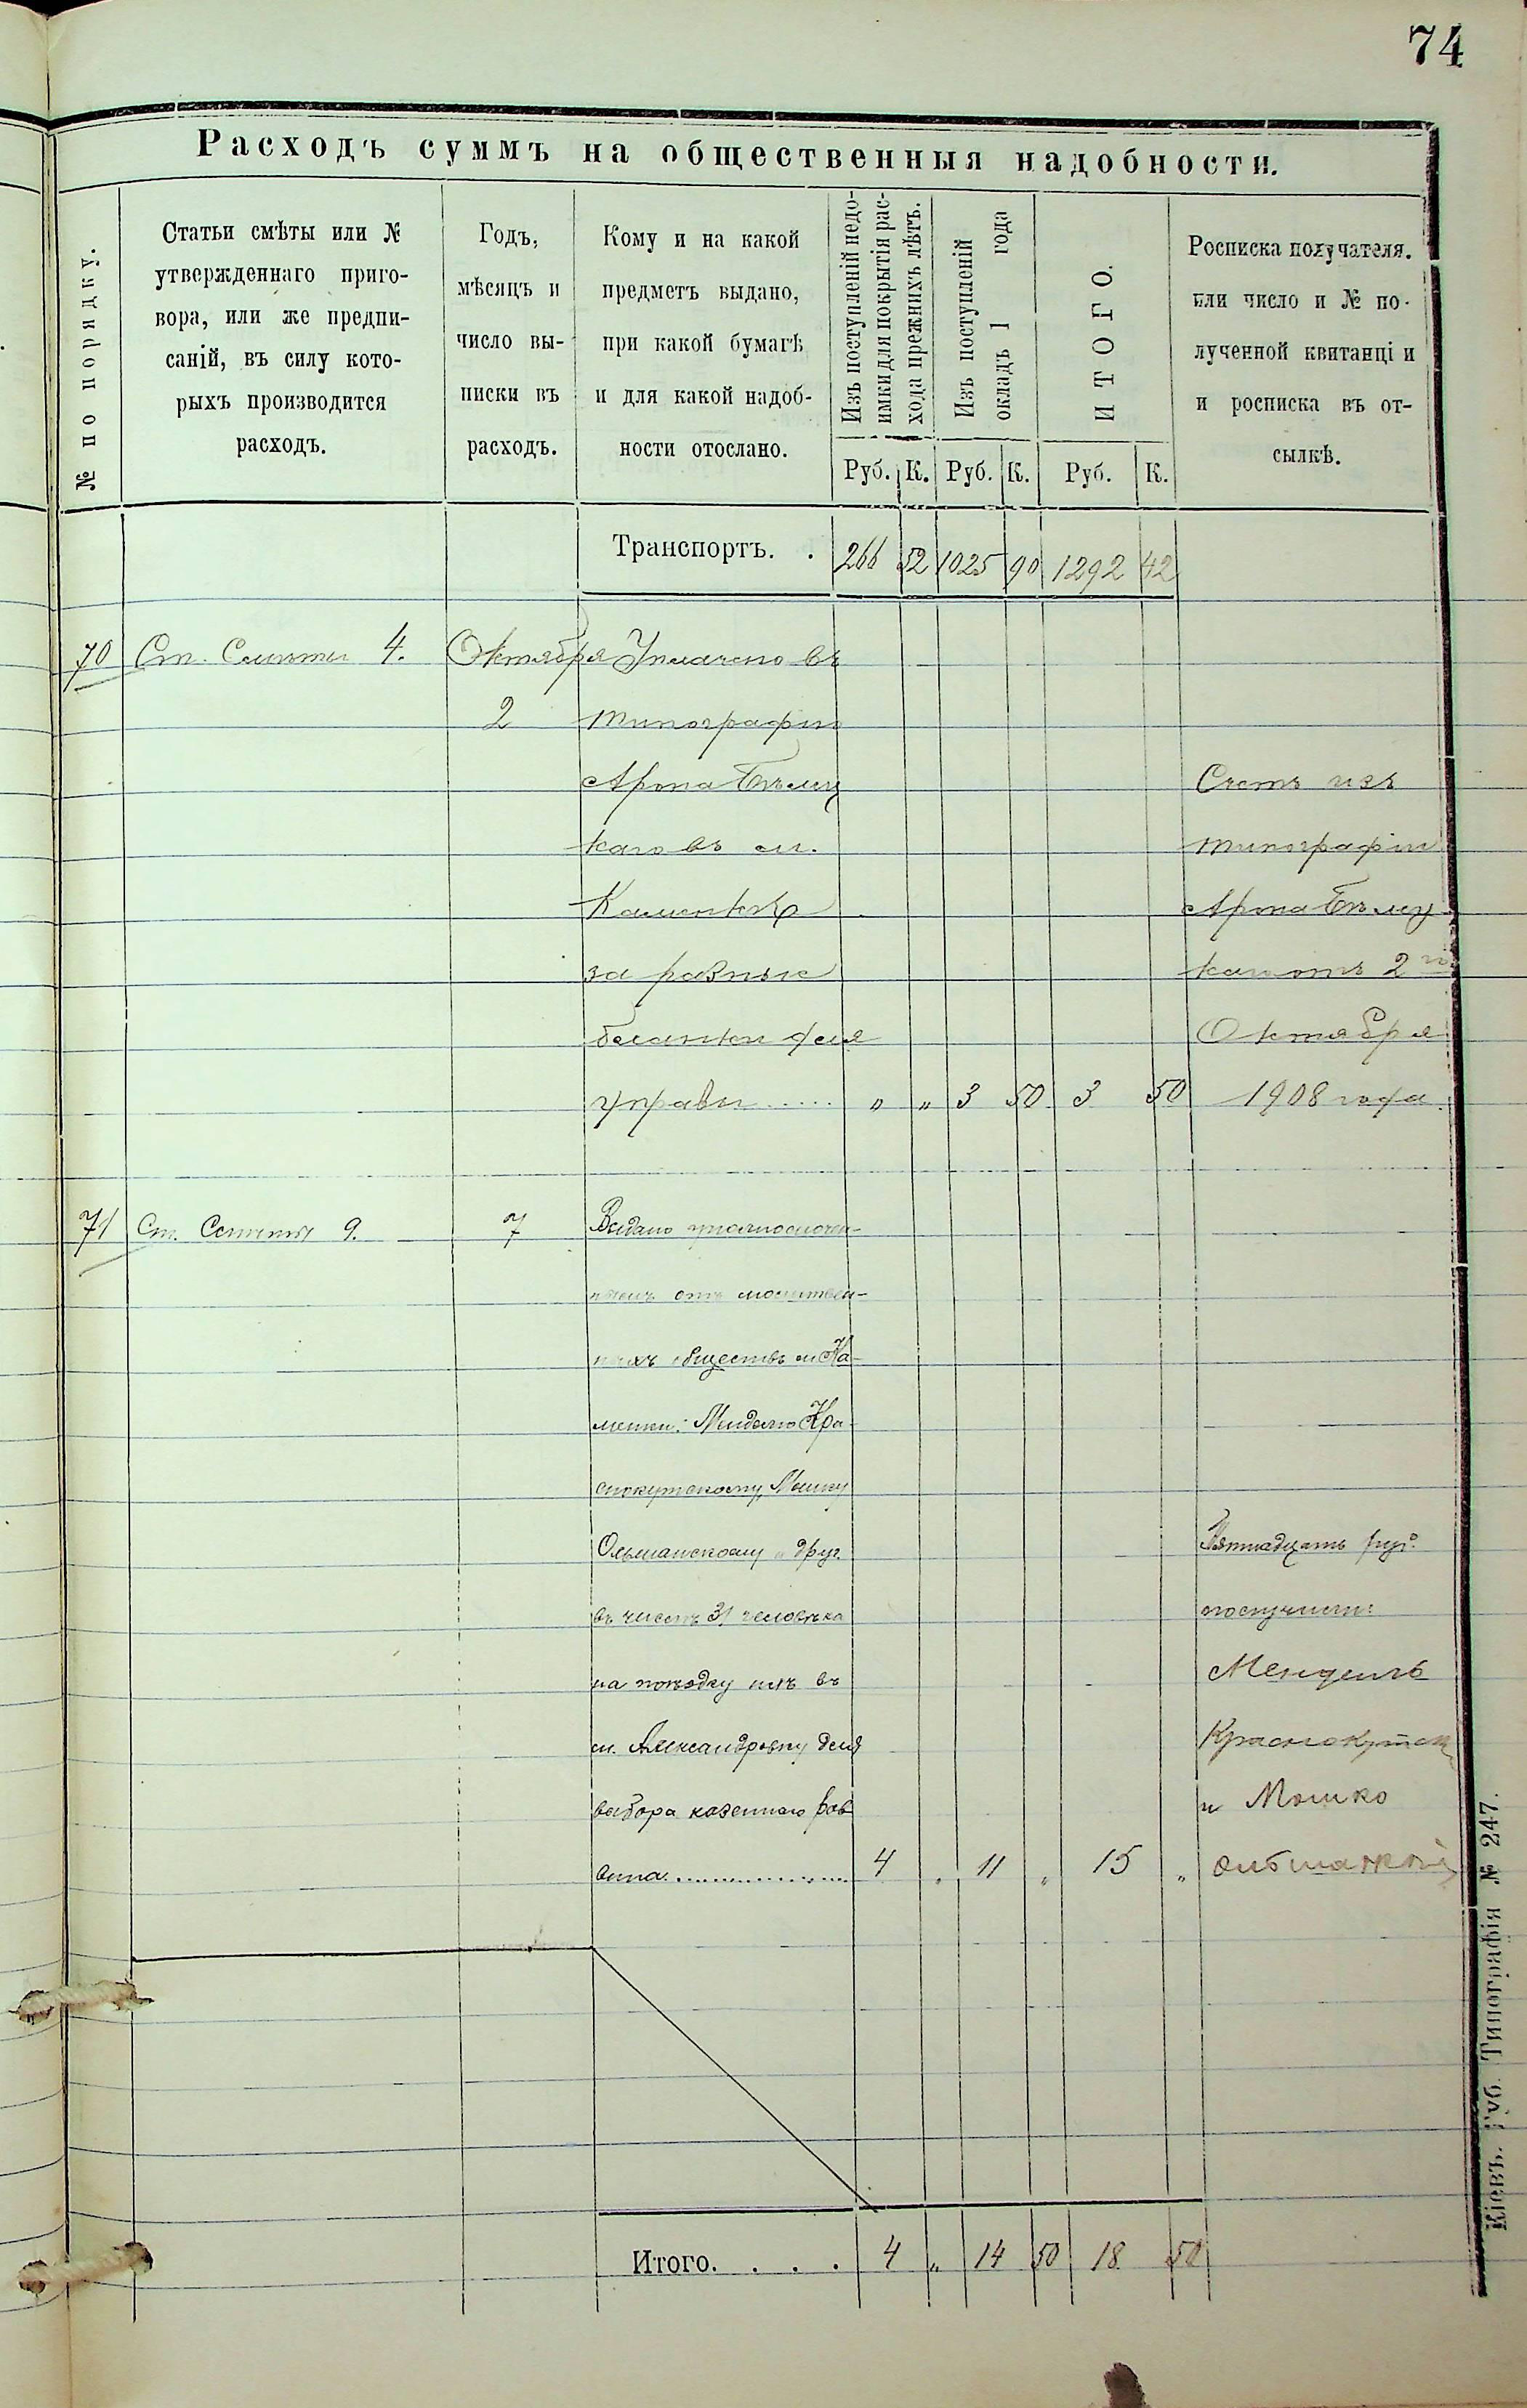 74
Расходъ суммъ на общественныя надобности.
№ по порядку.
Статьи смѣты или №
утвержденнаго приго-
вора, или же предпи-
саній, въ силу кото-
рыхъ производится
расходъ.
Годъ,
мѣсяцъ и
число вы-
писки въ
расходъ.
Кому и на какой
предметъ выдано,
при какой бумагѣ
и для какой надоб-
ности отослано.
Изъ поступленій недо-
имки для покрытія рас-
хода прежнихъ лѣтъ.
Изъ поступленій
окладъ 1 года
ИТОГО.
Росписка получателя.
или число и № по-
лученной квитанціи
и росписка въ от-
сылкѣ.
Руб. К. Руб. К. Руб. К.
Транспортъ. . 266 52 1025 90 1292 42
70 Ст. Смѣты 4. Октября Уплачено въ
2 типографію
Арона Бѣлиц
каго въ м. Счетъ изъ
Каменкѣ типографіи
за разные Арона Бѣлиц
бланки для каго отъ 2го
управы ..... " " 3 50 3 50 Октября
1908 года.
71 Ст. Смѣты 9. 7 Выдано уполномочен-
нымъ отъ молитвен-
ныхъ обществъ м. Ка-
менки: Мендлю Кра-
снокутскому, Мошку
Ольшанскому и друг.
въ числѣ 31 человѣка
на поѣздку ихъ въ
м. Александровку для
выбора казеннаго рав
вина.............. 4 " 11 " 15 "
Пятнадцать руб.
получили:
Мендель
Краснокутск
и Мошко
Олшанскій
Итого. . . . 4 " 14 50 18 50
Кіевъ. Губ. Типографія № 247.